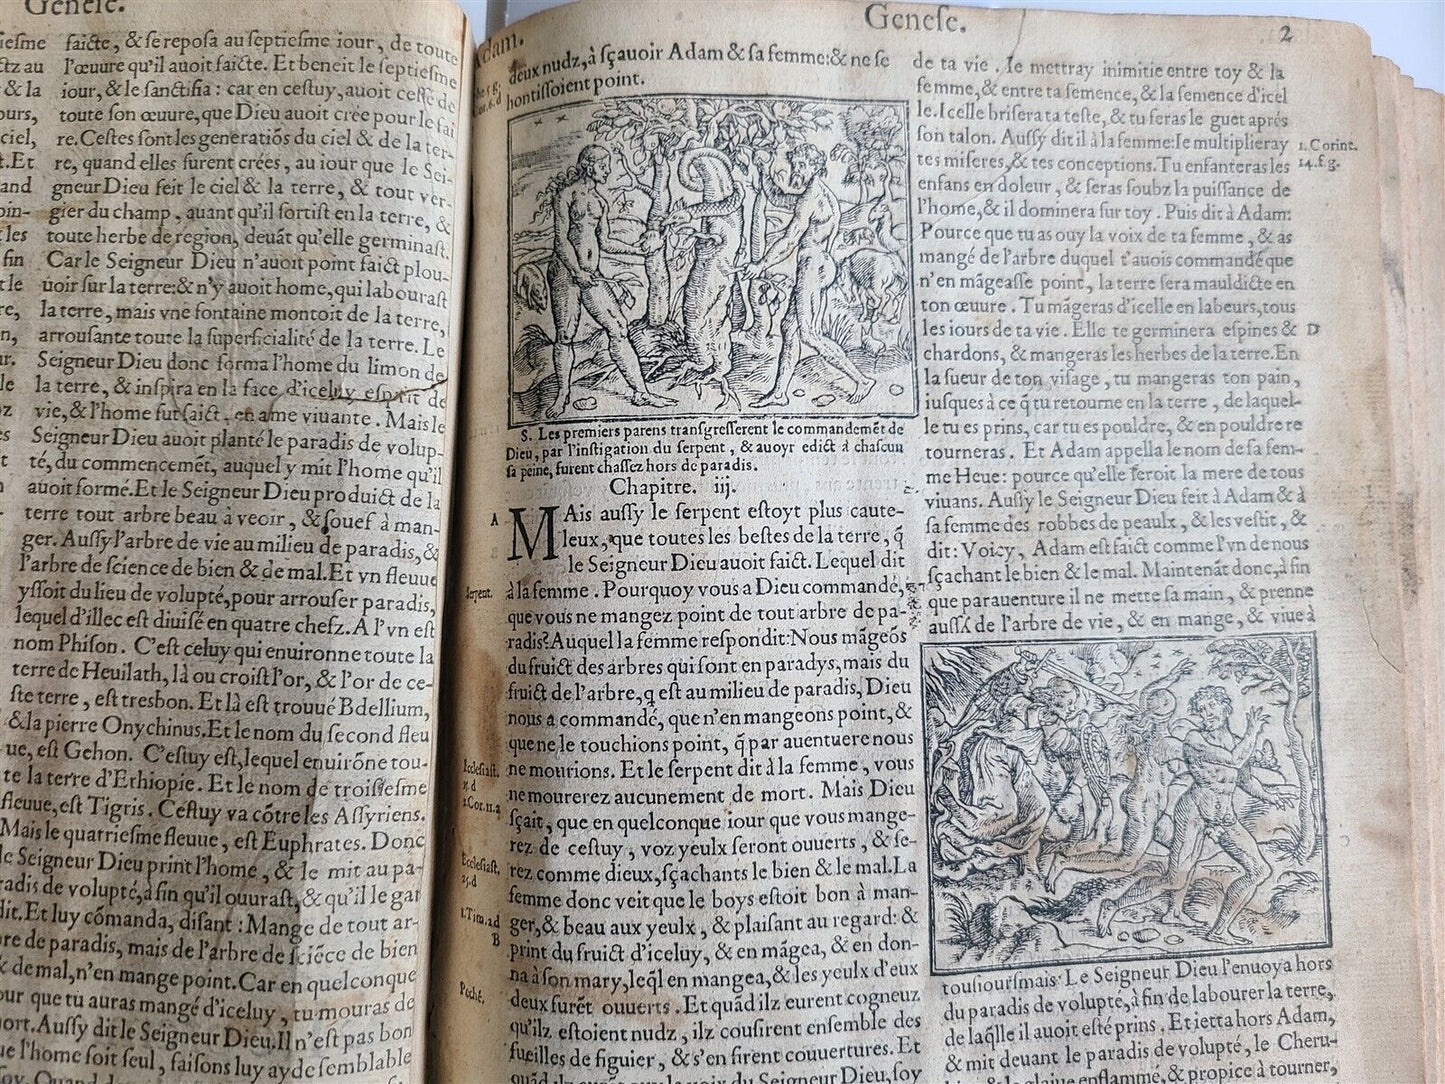 Genese.
faicte, & se reposa au septiesme iour, de toute
l'œuure qu'il auoit faicte. Et beneit le septiesme
iour, & le sanctifia: car en cestuy, auoit cessé de
toute son œuure, que Dieu auoit cree pour le fai
re. Cestes sont les generatiõs du ciel & de la ter-
re, quand elles furent crées, au iour que le Sei-
gneur Dieu feit le ciel & la terre, & tout ver-
gier du champ, auant qu'il sortist en la terre, &
toute herbe de region, deuãt qu'elle germinast.
Car le Seigneur Dieu n'auoit point faict plou-
uoir sur la terre: & n'y auoit home, qui labourast
la terre, mais vne fontaine montoit de la terre,
arrousante toute la superficialité de la terre. Le
Seigneur Dieu donc forma l'home du limon de
la terre, & inspira en la face d'iceluy esprit de
vie, & l'home fut faict, en ame viuante. Mais le
Seigneur Dieu auoit planté le paradis de volup-
té, du commencemẽt, auquel y mit l'home qu'il
auoit formé. Et le Seigneur Dieu produict de la
terre tout arbre beau à veoir, & souef à man-
ger. Aussy l'arbre de vie au milieu de paradis, &
l'arbre de science de bien & de mal. Et vn fleuue
yssoit du lieu de volupté, pour arrouser paradis,
lequel d'illec est diuisé en quatre chefz. A l'vn est
nom Phison. C'est celuy qui enuironne toute la
terre de Heuilath, là ou croist l'or, & l'or de ce-
ste terre, est tresbon. Et là est trouué Bdellium,
& la pierre Onychinus. Et le nom du second fleu
ue, est Gehon. C'estuy est, lequel enuirõne tou-
te la terre d'Ethiopie. Et le nom de troisiesme
fleuue, est Tigris. Cestuy va cõtre les Assyriens.
Mais le quatriesme fleuue, est Euphrates. Donc
le Seigneur Dieu print l'home, & le mit au pa-
radis de volupté, à fin qu'il ouurast, & qu'il le gar
dit. Et luy cõmanda, disant: Mange de tout ar-
bre de paradis, mais de l'arbre de sciẽce de bien
& de mal, n'en mange point. Car en quelconque
iour que tu auras mangé d'iceluy, tu mouras de
mort. Aussy dit le Seigneur Dieu. Il n'est pas bon
que l'home soit seul, faisons luy ayde semblable
Genese.
2
Adam.
deux nudz, à sçauoir Adam & sa femme: & ne se
hontissoient point.
S. Les premiers parens transgresserent le commandemẽt de
Dieu, par l'instigation du serpent, & auoyr edict à chascun
sa peine, furent chassez hors de paradis.
Chapitre. iij.
A
MAis aussy le serpent estoyt plus caute-
leux, que toutes les bestes de la terre, q̃
le Seigneur Dieu auoit faict. Lequel dit
Serpent.
à la femme. Pourquoy vous a Dieu commandé,
que vous ne mangez point de tout arbre de pa-
radis? Auquel la femme respondit: Nous mãgeõs
du fruict des arbres qui sont en paradys, mais du
fruict de l'arbre, q est au milieu de paradis, Dieu
nous a commandé, que n'en mangeons point, &
que ne le touchions point, q̃ par auentuere nous
ne mourions. Et le serpent dit à la femme, vous
ne mourerez aucunement de mort. Mais Dieu
sçait, que en quelconque iour que vous mange-
rez de cestuy, voz yeulx seront ouuerts, & se-
rez comme dieux, sçachants le bien & le mal. La
femme donc veit que le boys estoit bon à man-
ger, & beau aux yeulx, & plaisant au regard: &
print du fruict d'iceluy, & en mãgea, & en don-
na à son mary, leq̃l en mangea, & les yeulx d'eux
deux furẽt ouuerts. Et quãd ilz eurent cogneuz
qu'ilz estoient nudz, ilz cousirent ensemble des
fueilles de figuier, & s'en firent couuertures. Et
Ecclesiast.
2.Cor.11.a
Ecclesiast.
25.d
1.Tim.2.d
B
Peché.
de ta vie. Ie mettray inimitie entre toy & la
femme, & entre ta semence, & la semence d'icel
le. Icelle brisera ta teste, & tu feras le guet aprés
son talon. Aussy dit il à la femme: Ie multiplieray
tes miseres, & tes conceptions. Tu enfanteras les
enfans en doleur, & seras soubz la puissance de
l'home, & il dominera sur toy. Puis dit à Adam:
Pource que tu as ouy la voix de ta femme, & as
mangé de l'arbre duquel t'auois commandé que
n'en mãgeasse point, la terre sera mauldicte en
ton œuure. Tu mãgeras d'icelle en labeurs, tous
les iours de ta vie. Elle te germinera espines &
chardons, & mangeras les herbes de la terre. En
la sueur de ton visage, tu mangeras ton pain,
iusques à ce q̃ tu retourne en la terre, de laquel-
le tu es prins, car tu es pouldre, & en pouldre re
tourneras. Et Adam appella le nom de sa fem-
me Heue: pource qu'elle seroit la mere de tous
viuans. Aussy le Seigneur Dieu feit à Adam & à
sa femme des robbes de peaulx, & les vestit, &
dit: Voicy, Adam est faict comme l'vn de nous
sçachant le bien & le mal. Maintenãt donc, à fin
que parauenture il ne mette sa main, & prenne
aussy de l'arbre de vie, & en mange, & viue à
1.Corint.
14.f g.
D
tousioursmais: Le Seigneur Dieu l'enuoya hors
du paradis de volupté, à fin de labourer la terre,
de laq̃lle il auoit esté prins. Et ietta hors Adam,
& mit deuant le paradis de volupté, le Cheru-